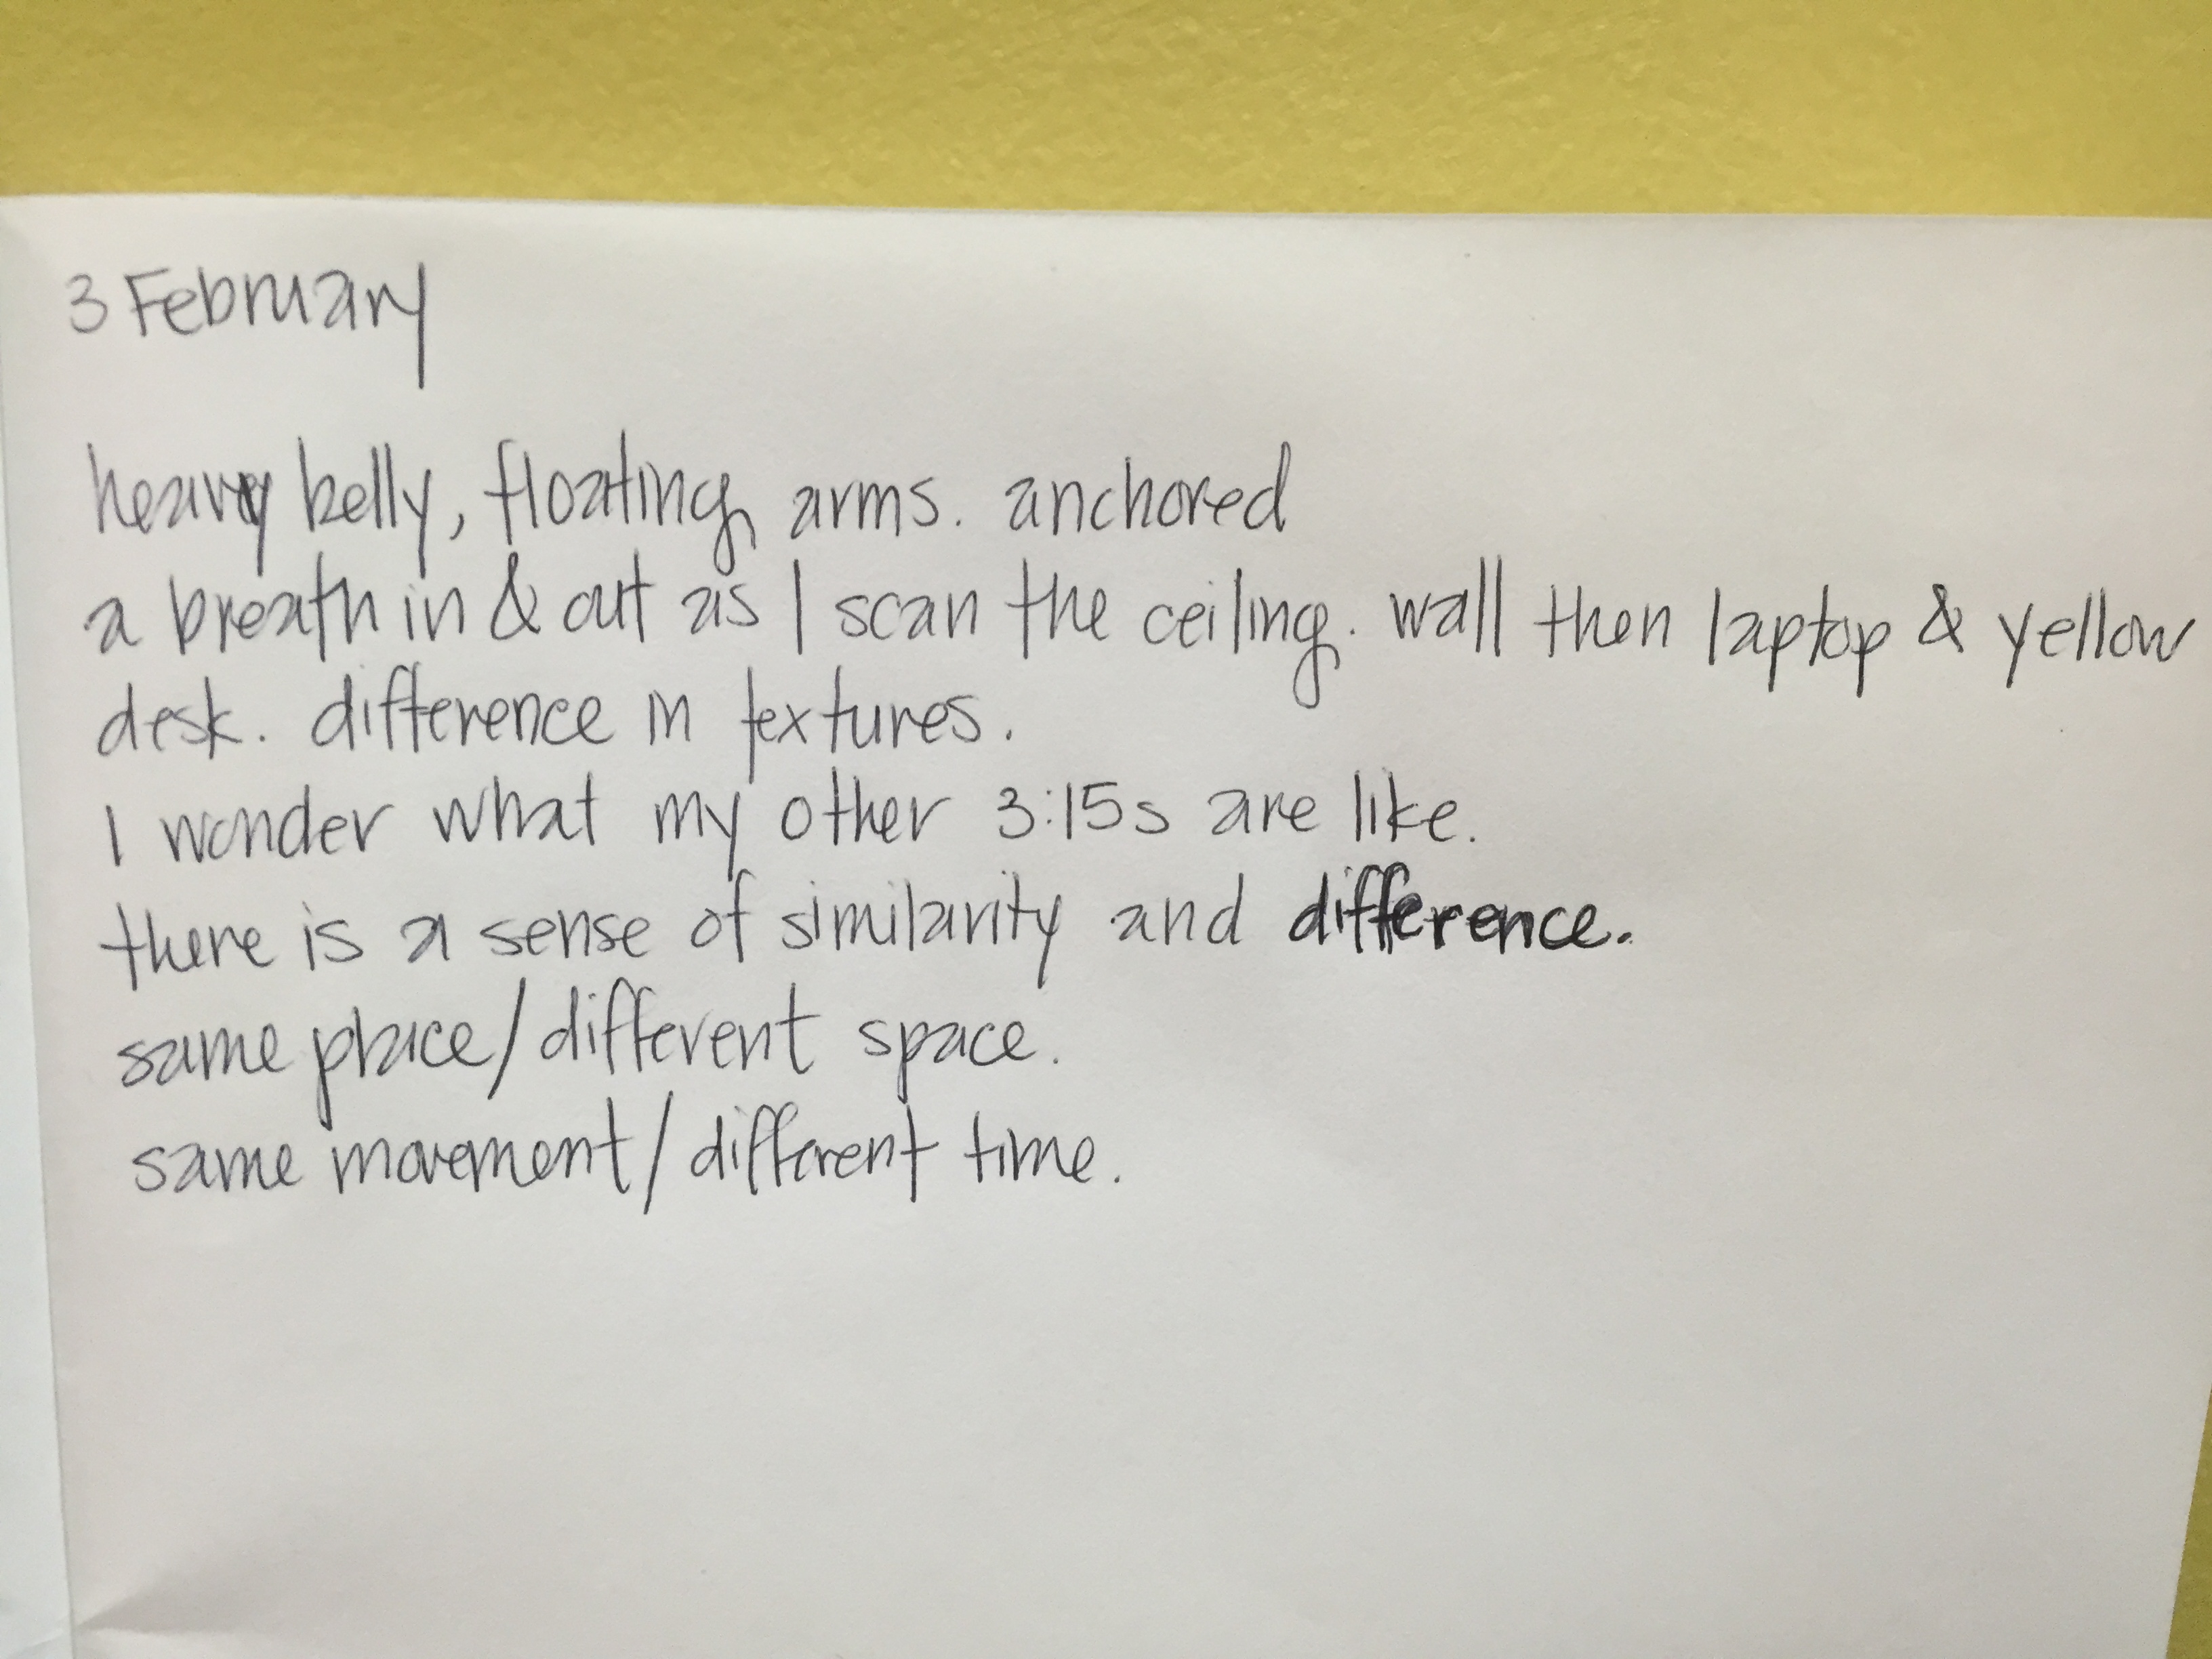 3 February
heavy belly, floating arms. anchored
a breath in & out as I scan the ceiling. wall then laptop & yellow
desk. difference in textures.
I wonder what my other 3:15s are like.
there is a sense of similarity and difference.
same place/different space.
same movement/different time.